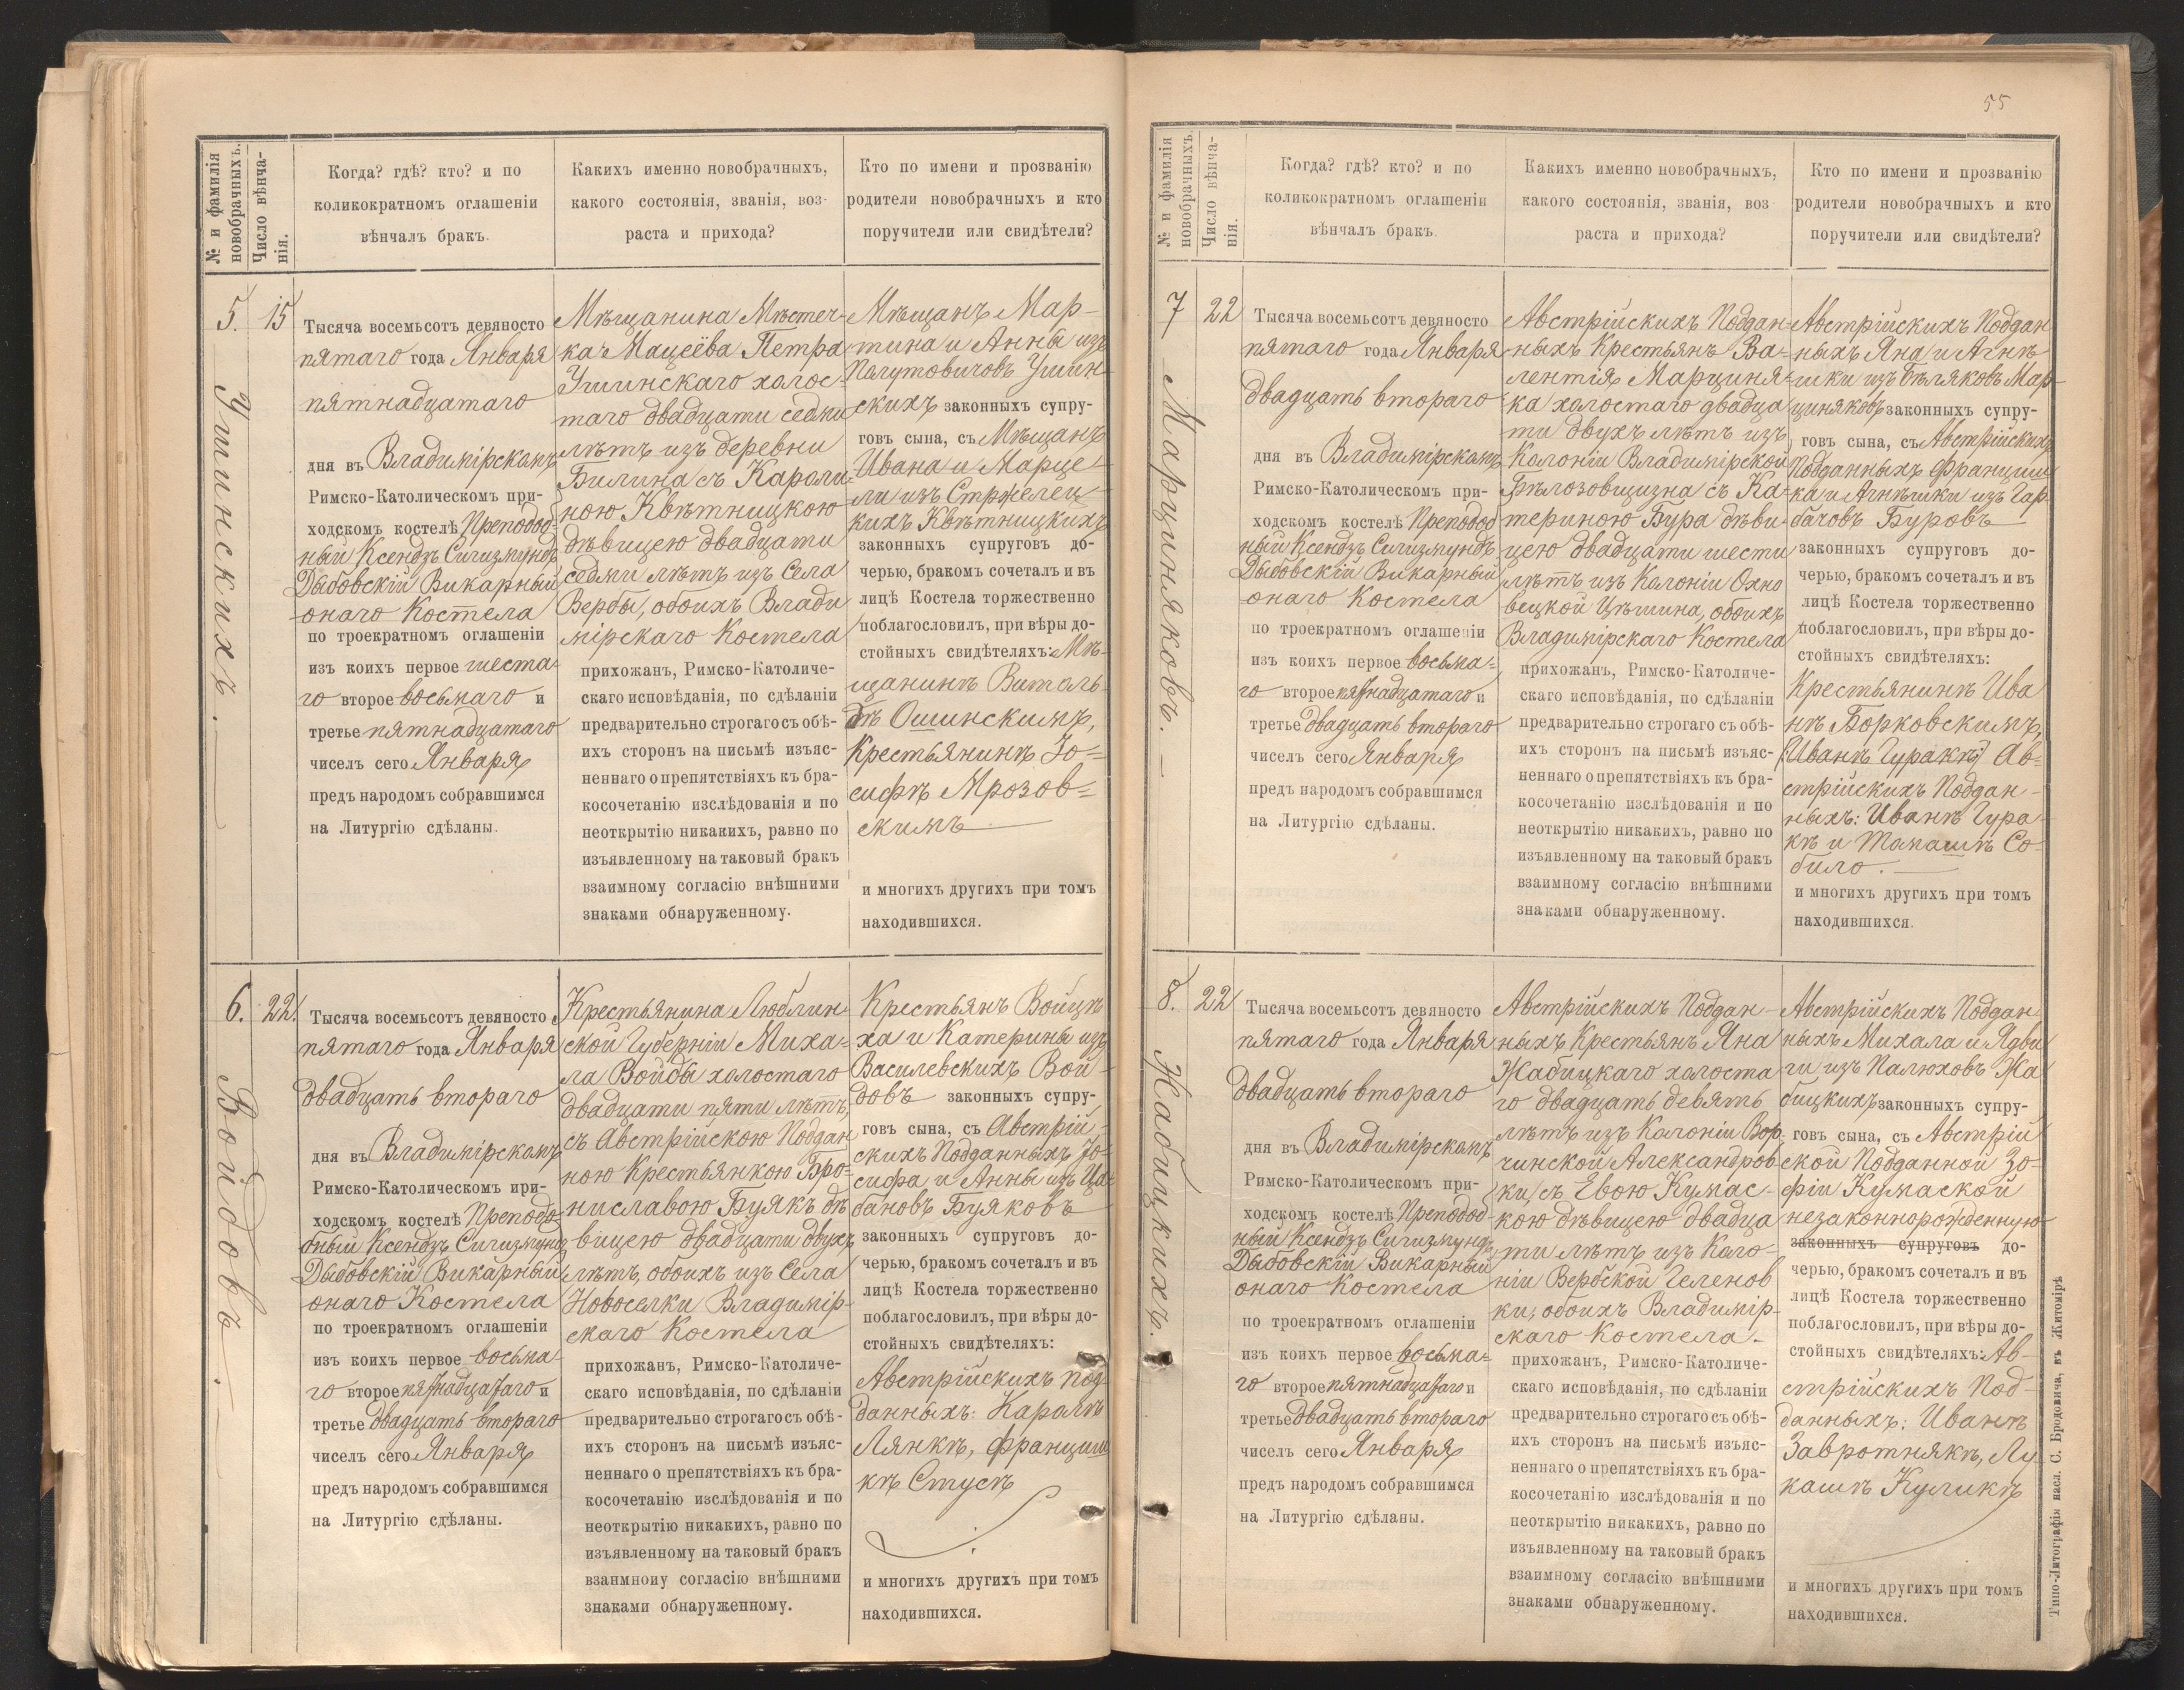 № и фамилія
новобрачныхъ.
Число вѣнча-
нія.
Когда? гдѣ? кто? и по
коликократномъ оглашеніи
вѣнчалъ бракъ.
Какихъ именно новобрачныхъ,
какого состоянія, званія, воз-
раста и прихода?
Кто по имени и прозванію
родители новобрачныхъ и кто
поручители или свидѣтели?
5.
Ушинскихъ.
15
Тысяча восемьсотъ девяносто
пятаго года Января
пятнадцатаго
дня въ Владимірскомъ
Римско-Католическомъ при-
ходскомъ костелѣ Преподоб-
ный Ксендзъ Сигизмундъ
Дыбовскій Викарный
онаго Костела
по троекратномъ оглашеніи
изъ коихъ первое шеста-
го второе восьмаго и
третье пятнадцатаго
чиселъ сего Января
предъ народомъ собравшимся
на Литургію сдѣланы.
Мѣщанина Мѣстеч-
ка Мацеёва Петра
Ушинскаго холос-
таго двадцати седми
лѣтъ изъ деревни
Билина съ Кароли-
ною Квѣтницкою
дѣвицею двадцати
седми лѣтъ изъ Села
Вербы, обоихъ Влади
мірскаго Костела
прихожанъ, Римско-Католиче-
скаго исповѣданія, по сдѣланіи
предварительно строгаго съ обѣ-
ихъ сторонъ на письмѣ изъяс-
неннаго о препятствіяхъ къ бра-
косочетанію изслѣдованія и по
неоткрытію никакихъ, равно по
изъявленному на таковый бракъ
взаимному согласію внѣшними
знаками обнаруженному.
Мѣщанъ Мар-
тина и Анны изъ
Полутовичовъ Ушин-
скихъ законныхъ супру-
говъ сына, съ Мѣщанъ
Ивана и Марце-
ли изъ Стржелец-
кихъ Квѣтницкихъ
законныхъ супруговъ до-
черью, бракомъ сочеталъ и въ
лицѣ Костела торжественно
поблагословилъ, при вѣры до-
стойныхъ свидѣтеляхъ: Мѣ-
щанинѣ Витоль-
дѣ Ошинскимъ,
Крестьянинѣ Іо-
сифѣ Мрозов-
скимъ
и многихъ другихъ при томъ
находившихся.
6.
Войдовъ.
22.
Тысяча восемьсотъ девяносто
пятаго года Января
двадцать втораго
дня въ Владимірскомъ
Римско-Католическомъ при-
ходскомъ костелѣ Преподо-
бный Ксендзъ Сигизмундъ
Дыбовскій Викарный
онаго Костела
по троекратномъ оглашеніи
изъ коихъ первое восьма-
го второе пятнадцатаго и
третье двадцать втораго
чиселъ сего Января
предъ народомъ собравшимся
на Литургію сдѣланы.
Крестьянина Люблин-
ской Губерніи Миха-
ла Войды холостаго
двадцати пяти лѣтъ,
съ Австрійскою Поддан
ною Крестьянкою Бро-
ниславою Буякъ дѣ
вицею двадцати двухъ
лѣтъ, обоихъ изъ Села
Новоселки Владимір-
скаго Костела
прихожанъ, Римско-Католиче-
скаго исповѣданія, по сдѣланіи
предварительно строгаго съ обѣ-
ихъ сторонъ на письмѣ изъяс-
неннаго о препятствіяхъ къ бра-
косочетанію изслѣдованія и по
неоткрытію никакихъ, равно по
изъявленному на таковый бракъ
взаимноиу согласію внѣшними
знаками обнаруженному.
Крестьянъ Войцѣ
ха и Катерины изъ
Василевскихъ Вой-
довъ законныхъ супру-
говъ сына, съ Австрій-
скихъ Подданныхъ Іо-
сифа и Анны изъ Ца-
бановъ Буяковъ
законныхъ супруговъ до-
черью, бракомъ сочеталъ и въ
лицѣ Костела торжественно
поблагословилъ, при вѣры до-
стойныхъ свидѣтеляхъ:
Австрійскихъ Под-
данныхъ: Каролѣ
Лянкѣ, Францишъ
кѣ Стусѣ
и многихъ другихъ при томъ
находившихся.
55
№ и фамилія
новобрачныхъ.
Число вѣнча-
нія.
Когда? гдѣ? кто? и по
коликократномъ оглашеніи
вѣнчалъ бракъ.
Какихъ именно новобрачныхъ,
какого состоянія, званія, воз
раста и прихода?
Кто по имени и прозванію
родители новобрачныхъ и кто
поручители или свидѣтели?
7
Марциняковъ.
22
Тысяча восемьсотъ девяносто
пятаго года Января
двадцать втораго
дня въ Владимірскомъ
Римско-Католическомъ при-
ходскомъ костелѣ Преподоб
ный Ксендзъ Сигизмундъ
Дыбовскій Викарный
онаго Костела
по троекратномъ оглашеніи
изъ коихъ первое восьма-
го второе пятнадцатаго и
третье двадцать втораго
чиселъ сего Января
предъ народомъ собравшимся
на Литургію сдѣланы.
Австрійскихъ Поддан-
ныхъ Крестьянъ Ва-
лентія Марциня-
ка холостаго двадца
ти двухъ лѣтъ изъ
Колоніи Владимірской
Фѣлозовщизна съ Ка-
териною Бура дѣви-
цею двадцати шести
лѣтъ изъ Колоніи Охно
вецкой Цѣшина, обоихъ
Владимірскаго Костела
прихожанъ, Римско-Католиче-
скаго исповѣданія, по сдѣланіи
предварительно строгаго съ обѣ-
ихъ сторонъ на письмѣ изъяс-
неннаго о препятствіяхъ къ бра-
косочетанію изслѣдованія и по
неоткрытію никакихъ, равно по
изъявленному на таковый бракъ
взаимному согласію внѣшними
знаками обнаруженному.
Австрійскихъ Поддан
ныхъ Яна и Агнѣ
шки изъ Бѣляковъ Мар-
циняковъ законныхъ супру-
говъ сына, съ Австрійскихъ
Подданныхъ Францишъ
ка и Агнѣшки изъ Гар-
бачовъ Буровъ
законныхъ супруговъ до-
черью, бракомъ сочеталъ и въ
лицѣ Костела торжественно
поблагословилъ, при вѣры до-
стойныхъ свидѣтеляхъ:
Крестьянинѣ Ива
нѣ Борковскимъ,
(Иванѣ Гуракѣ) Ав-
стрійскихъ Поддан-
ныхъ: Иванѣ Гура-
кѣ и Томашѣ Со-
било.
и многихъ другихъ при томъ
находившихся.
8.
Жабицкихъ.
22
Тысяча восемьсотъ девяносто
пятаго года Января
двадцать втораго
дня въ Владимірскомъ
Римско-Католическомъ при-
ходскомъ костелѣ Преподоб-
ный Ксендзъ Сигизмундъ
Дыбовскій Викарный
онаго Костела
по троекратномъ оглашеніи
изъ коихъ первое восьма-
го второе пятнадцатаго и
третье двадцать втораго
чиселъ сего Января
предъ народомъ собравшимся
на Литургію сдѣланы.
Австрійскихъ Поддан-
ныхъ Крестьянъ Яна
Жабицкаго холоста
го двадцать девять
лѣтъ изъ Колоніи Вор-
чинской Александров-
ки, съ Евою Кумас-
кою дѣвицею двадца
ти лѣтъ изъ Коло-
ніи Вербской Геленов
ки, обоихъ Владимір-
скаго Костела.
прихожанъ, Римско-Католиче-
скаго исповѣданія, по сдѣланіи
предварительно строгаго съ обѣ-
ихъ сторонъ на письмѣ изъяс-
неннаго о препятствіяхъ къ бра-
косочетанію изслѣдованія и по
неоткрытію никакихъ, равно по
изъявленному на таковый бракъ
взаимному согласію внѣшними
знаками обнаруженному.
Австрійскихъ Поддан
ныхъ Михала и Ядви
ги изъ Палюховъ Жа
бицкихъ законныхъ супру-
говъ сына, съ Австрій
ской Подданной Зо-
фіи Кумаской
незаконнорожденную
законныхъ супруговъ до-
черью, бракомъ сочеталъ и въ
лицѣ Костела торжественно
поблагословилъ, при вѣры до-
стойныхъ свидѣтеляхъ: Ав-
стрійскихъ Под-
данныхъ: Иванѣ
Завротнякѣ, Лу
кашѣ Куликѣ
и многихъ другихъ при томъ
находившихся.
Типо-Литографія насл. С. Бродовича, въ Житомірѣ